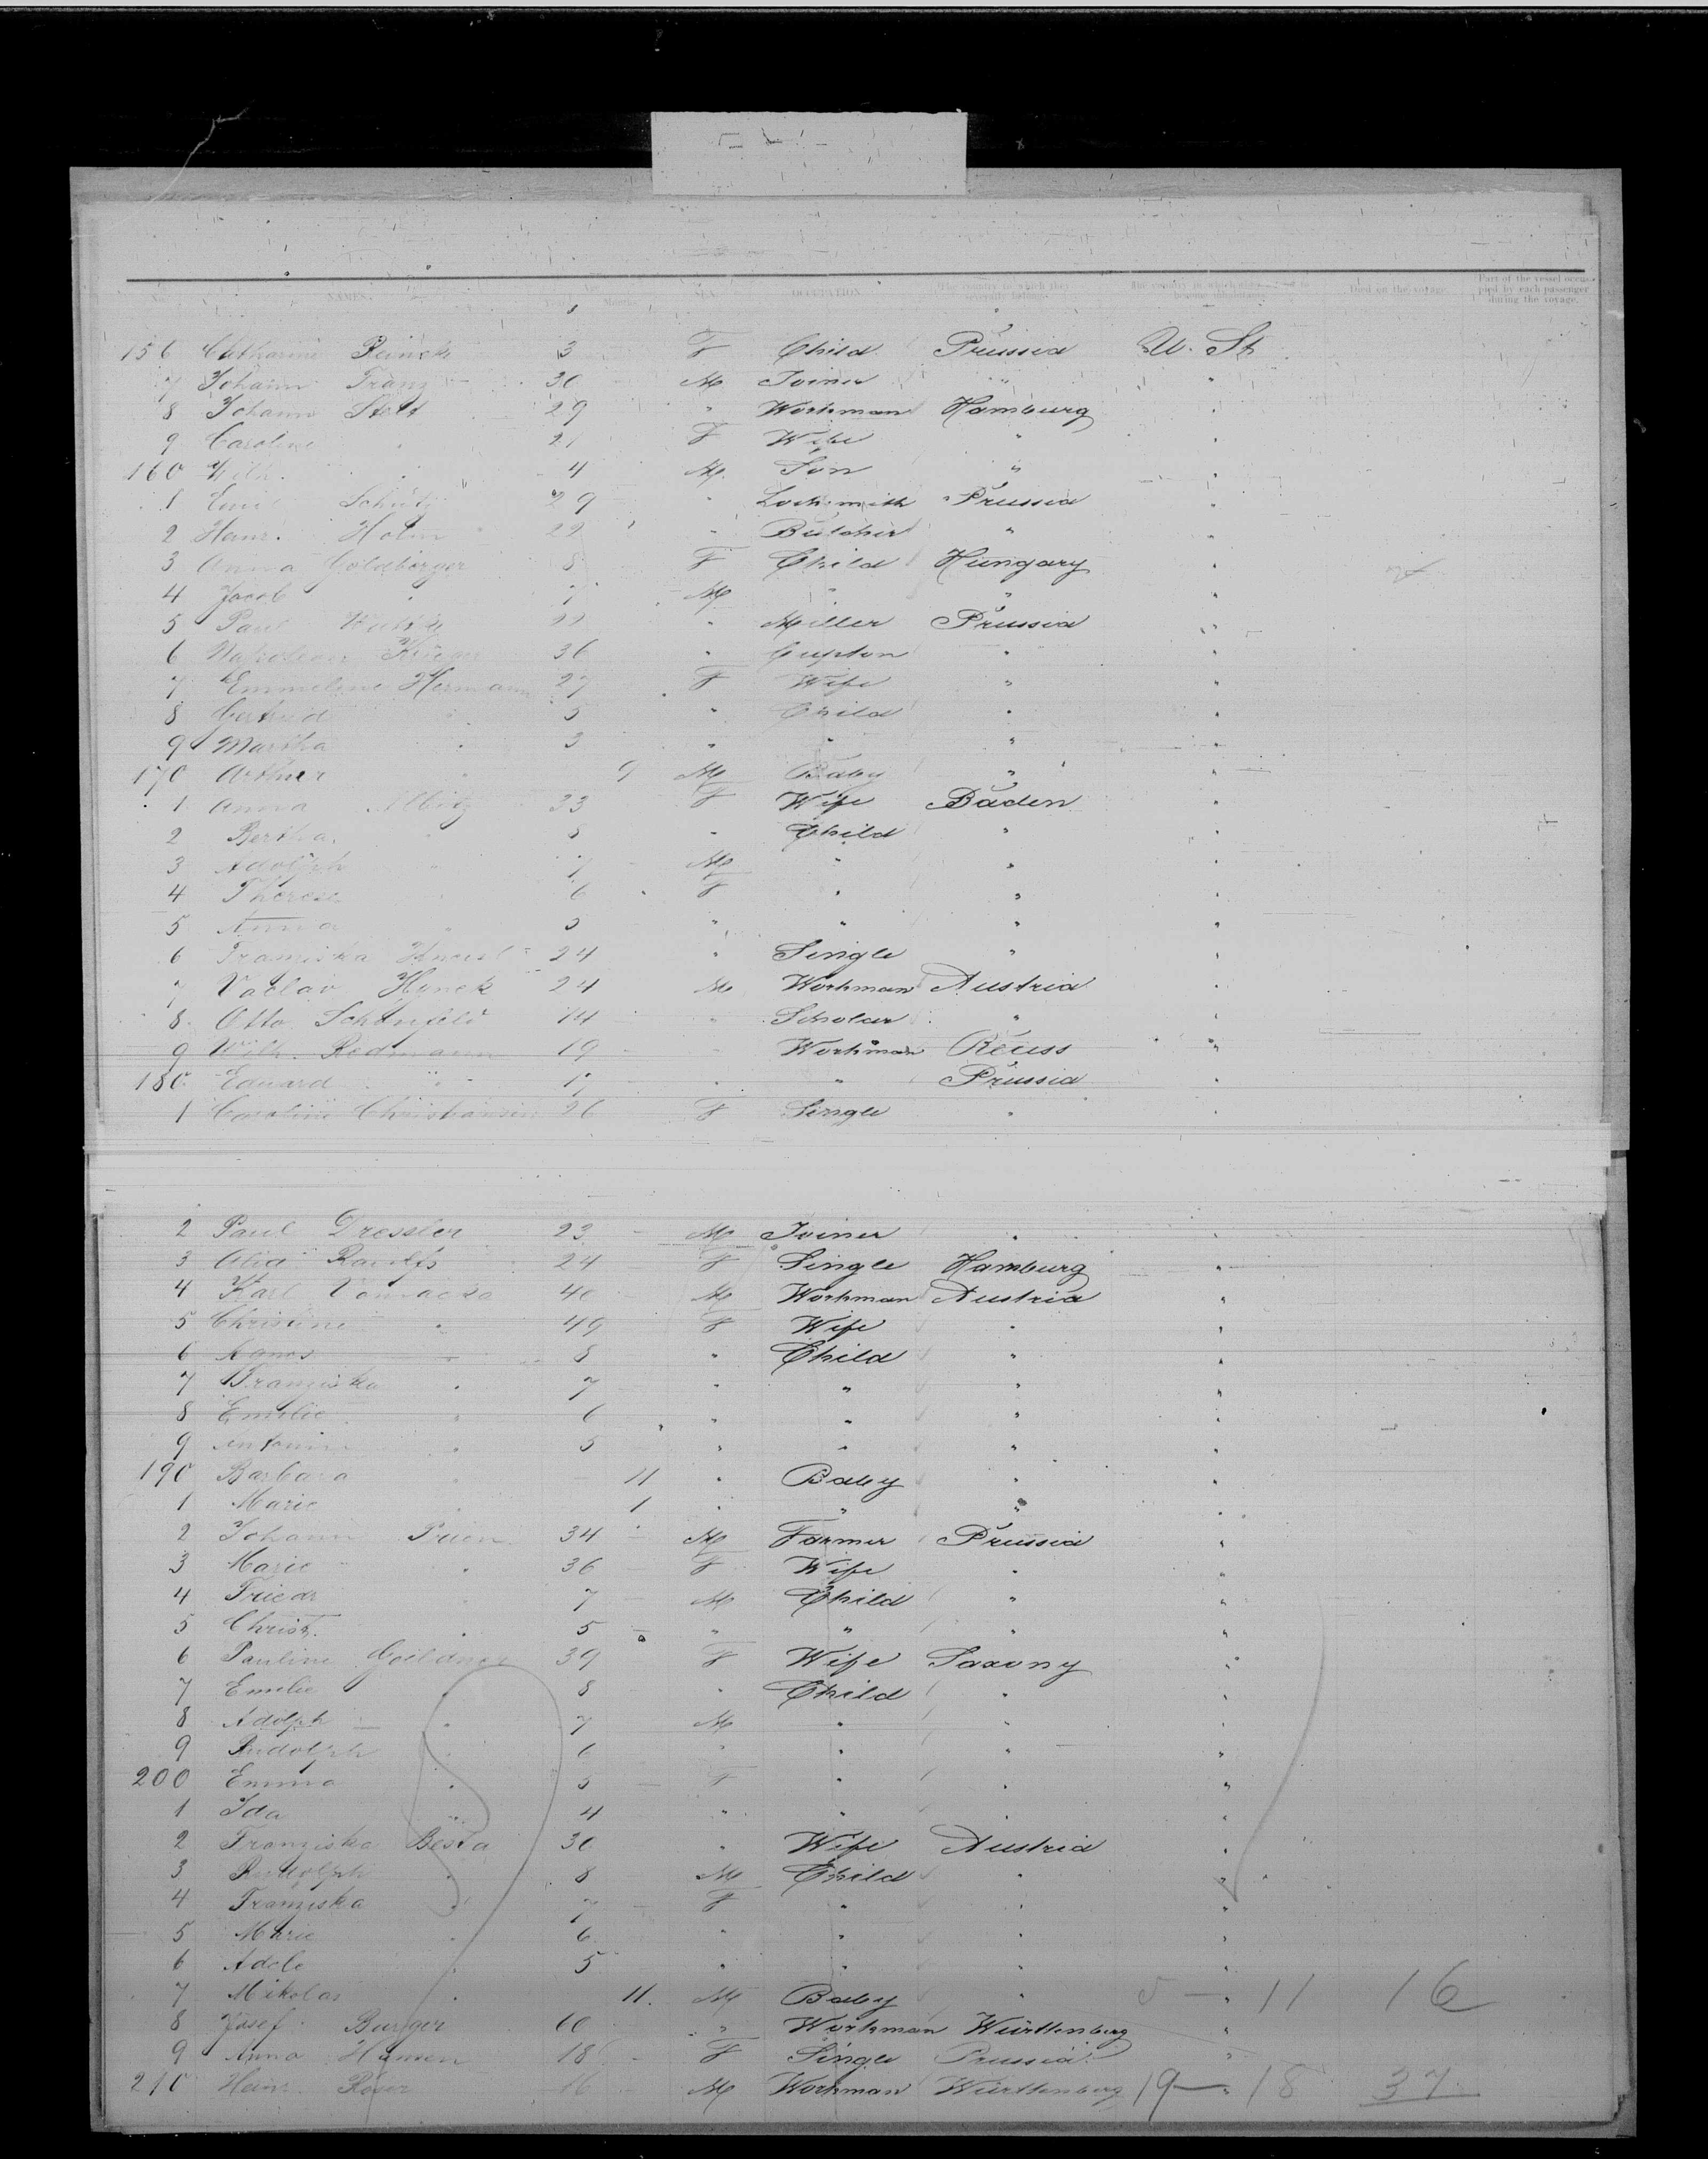 No. NAMES. Age Years Months SEX OCCUPATION The country to which they severally belong. Died on the voyage. Part of the vessel occupied by each passenger during the voyage.
156 Catharine Reinck 3 F Child Prussia U. St.
7 Johann Franz 30 M Joiner " "
8 Johann Stolt 29 " Workman Hamburg "
9 Caroline " 21 F Wife " "
160 Wilh. " 4 M Son " "
1 Emil Schütz 29 " Locksmith Prussia "
2 Heinr. Holm 22 " Butcher " "
3 Anna Goldberger 8 F Child Hungary "
4 Jacob " 7 M " " "
5 Paul 22 " Miller Prussia "
6 Krüger 36 " " "
7 Emmeline Hermann 27 F Wife " "
8 Gertrud " 5 " Child " "
9 Martha " 3 " " " "
170 Arthur " 9 M Baby " "
1 Anna 33 F Wife Baden "
2 Bertha " 8 " Child " "
3 Adolph " 7 M " " "
4 Therese " 6 F " " "
5 Anna " 5 " " " "
6 Franziska 24 " Single " "
7 Vaclav Hynek 24 M Workman Austria "
8 Otto Schönfeld 14 " Scholar " "
9 Wilh. Redmann 19 " Workman Reuss "
180 Eduard " 17 " " Prussia "
1 Caroline Christiansen 26 F Single " "
2 Paul Dressler 23 M Joiner " "
3 24 F Single Hamburg "
4 Karl 40 M Workman Austria "
5 Christine " 49 F Wife " "
6 Agnes " 8 " Child " "
7 Franziska " 7 " " " "
8 Emilie " 6 " " " "
9 Antonin " 5 " " " "
190 Barbara " 11 " Baby " "
1 Marie " 1 " " " "
2 Johann Prien 34 M Farmer Prussia "
3 Marie " 36 F Wife " "
4 Friedr " 7 M Child " "
5 Christ. " 5 " " " "
6 Pauline Geildner 39 F Wife Saxony "
7 Emilie " 8 " Child " "
8 Adolph " 7 M " " "
9 Rudolph " 6 " " " "
200 Emma " 5 F " " "
1 Ida " 4 " " " "
2 Franziska Besta 30 " Wife Austria "
3 Rudolph " 8 M Child " "
4 Franziska " 7 F " " "
5 Marie " 6 " " " "
6 Adele " 5 " " " "
7 Mikolas " 11 M Baby " " 11 16
8 Josef Burger 60 " Workman Württenberg "
9 Anna Hansen 18 F Single Prussia "
210 Heinr. Röser 16 M Workman Württenberg 19 — " 18 37